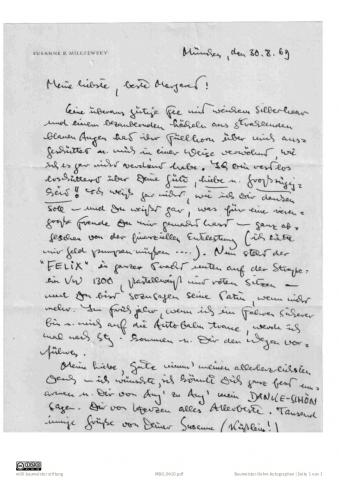 SUSANNE B. MILEZEWSKY
München, den 30.8.69
Meine liebste, beste Margaret!
Eine überaus gütige Fee mit weichem Silberhaar
und einem bezaubernden Lächeln aus strahlenden
blauen Augen hat ihr Füllhorn über mich aus-
geschüttet u. mich in einer Weise verwöhnt, wie
ich es gar nicht verdient habe. Ich bin restlos
erschüttert über Deine Güte, Liebe u. Großzügig-
keit! Ich weiß gar nicht, wie ich Dir danken
soll – und Du weißt gar, was für eine riesen-
große Freude Du mir gemacht hast – ganz ab-
gesehen von der finanziellen Entlastung (ich hätte
mir Geld pumpen müssen ....). Nun steht der
"FELIX" in ganzer Pracht unten auf der Straße –
ein VW 1300, pastellweiß und roten Sitzen –
und Du bist sozusagen seine Patin, wenn nicht
mehr. Im Frühjahr, wenn ich ein sicherer
bin u. mich auf die Autobahn traue, werde ich
mal nach Stg. kommen u. Dir den Wagen vor-
führen.
Meine liebe, Gute nimm' meinen allerherzlichsten
Dank – ich wünschte, ich könnte Dich ganz fest um-
armen u. Dir von Aug' zu Aug' mein DANKE-SCHÖN
sagen. Dir von Herzen alles Allerbeste. Tausend
innige Grüße von Deiner Susanne
baumeister stiftung
Baumeister Online Autographen | Seite 1 von 1